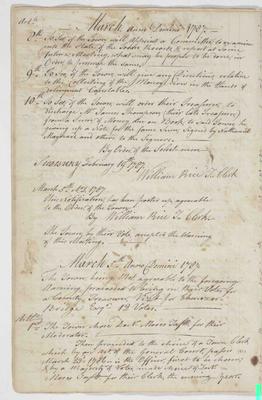 March Anno Domini 1787.
8th To See if the Town will appoint a Committee to examine
into the State of the Town Records & report at Some
future Meeting, what may be proper to be done, in
Order to preserve the same.
9th To See if the Town will give any Directions relative
to the of the Money now in the Hands of
Constables.
10th To See if the Town will order their Treasurer to
discharge Mr James Thompson (their late Treasurer)
from a Sum of Money due on Book, to said Town, he
giving up a Note for the same Sum, Signed by Nathaniel
Maynard and others to the Treasurer.
By Order of the Select men
Sudbury February 19th 1787.
William Rice T. Clerk
March 5th AD. 1787.
This notification has been posted up, agreeable
to the Order of the Town.
By William Rice T. Clerk.
The Town by their Vote accepted the Warning
of this Meeting.
March 5th Anno Domini 1787.
The Town being met agreeable to the foregoing
Warning, proceeded to bring in their Votes for
a County Treasurer, Votes for Ebenezer
Bridge Esqr. 12 Votes.
1st The Town chose Deact. Moses Taft for their
Moderator.
Then proceeded to the choice of a Town Clerk
which by an Act of the General Court, passed
March 23d 1786 is the Officer, first to be chosen,
& by a Majority of Votes made choice of Deact.
Moses Taft for their Clerk the ensuing year.